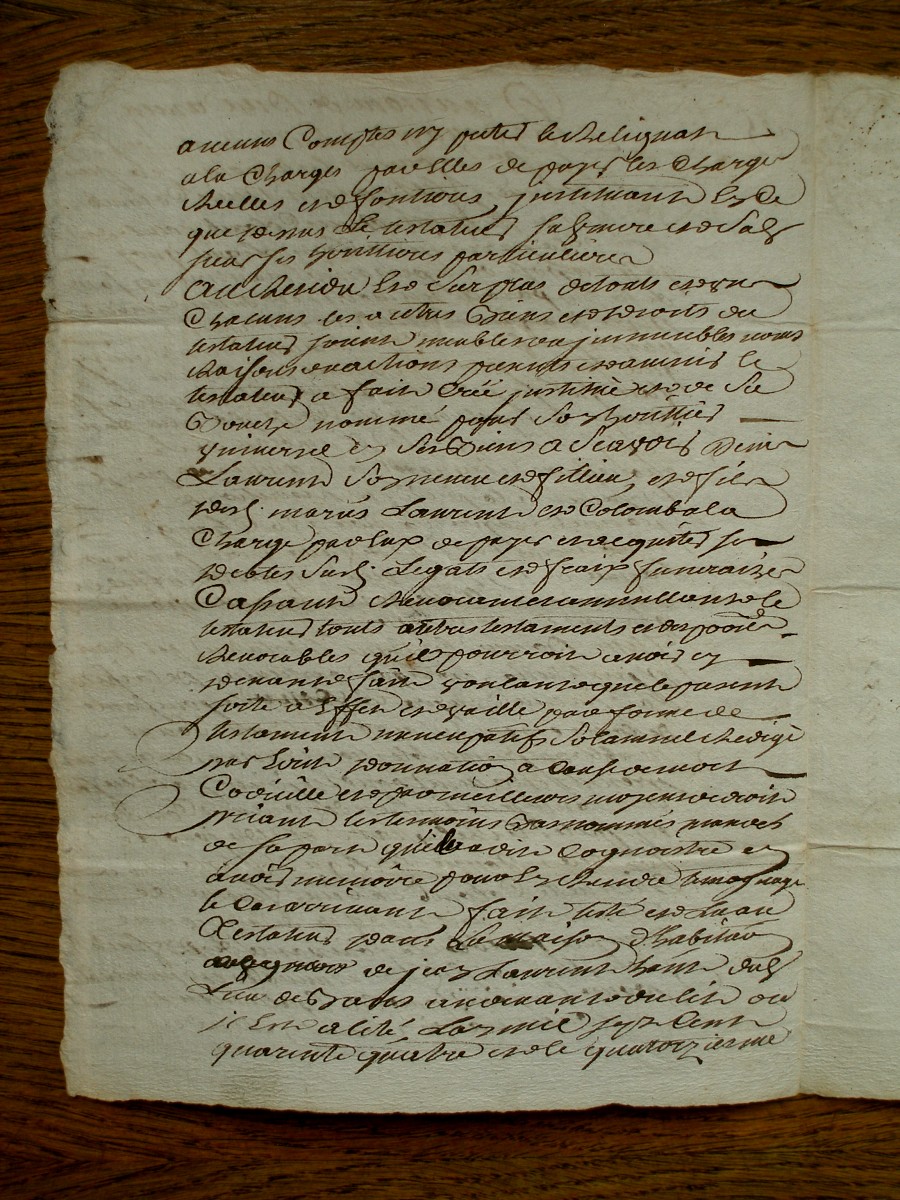 aucuns Comptes ny preter le Reliquat
a la Charges par Elles de payer les Charges
Reelles et de fontions, justituant En Ce
que dessus Le testateur sa femme et de Sab
sieur ses heritieres particulieres
Au Residu Et de Surplus de touts et d'une
Chacuns les autres Biens et de droits du
testateur soient meubles ou jmmeubles noms
Raisons et actions presents et advenir le
testateur a fait Créé justitué et de Sa
Bouche nommé pour Son heritier
universel En Ses Biens a Scavoir Denis
Laurent Son neveu et de filleul, et de fils
desd. mariés Laurent et de Colomb a la
Charge par Lux de payer et acquiter ses
debtes Susd. Legats et de fraix funeraires
Cassant Revocant et annullant de le
testateur touts autres testaments et disposés
Revocables qu'il pourroit avoir cy
devant fait voulant que le present
sorte a Effet et de vaille par forme de
testament nuncupatifs Solamnel Redigé
par Ecrit donnation a Cause de mort
Codicille et de par meilleurs moyens de droit
priant les temoins Bas nommés mandés
de sa part qu'il a dit Cognoistre en
avoir memoire pour En Rendre temoignage
le Cas arrivant fait leté et de Luau
Testateur dans La maison d'habitaõn
de jean Laurent hault dud.
Lieu de au devant du lit ou
jl Est alité Lan mil sept Cent
quarente quatre et de le quatorzieme